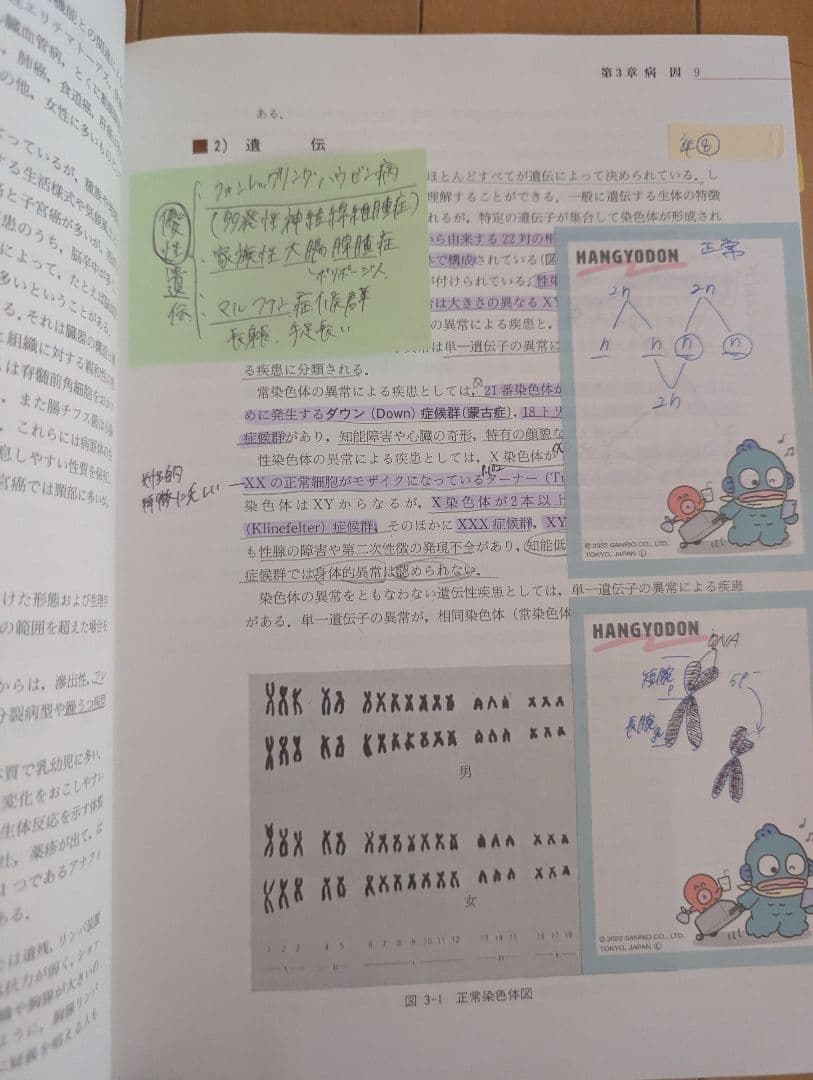 第3章 病 因 9
ある.
2) 遺 伝
年⑧
優性遺伝
・フォンレックリングハウゼン病
(多発性神経線維腫症)
・家族性大腸腺腫症
ポリポージス
・マルファン症候群
長身、手足長い
ほとんどすべてが遺伝によって決められている. し
理解することができる. 一般に遺伝する生体の特徴
れるが, 特定の遺伝子が集合して染色体が形成され
から由来する 22 対の相
で構成されている (図
が付けられている. 性染
は大きさの異なる XY
の異常による疾患と,
常は単一遺伝子の異常に
る疾患に分類される.
常染色体の異常による疾患としては, 21 番染色体が
めに発生するダウン (Down) 症候群 (蒙古症), 18 トリ
症候群があり, 知能障害や心臓の奇形, 特有の顔貌な
性染色体の異常による疾患としては, X 染色体が
XX の正常細胞がモザイクになっているターナー (Tu
染色体は XY からなるが, X 染色体が 2 本以上
(Klinefelter) 症候群, そのほかに XXX 症候群, XY
も性腺の障害や第二次性徴の発現不全があり, 知能低
症候群では身体的異常は認められない.
染色体の異常をともなわない遺伝性疾患としては, 単一遺伝子の異常による疾患
がある. 単一遺伝子の異常が, 相同染色体 (常染色体
HANGYODON 正常
2n 2n
n n n n
2n
© 2022 SANRIO CO., LTD.
TOKYO, JAPAN Ⓛ
HANGYODON
DNA
短腕
P
5P-
長腕
q
© 2022 SANRIO CO., LTD.
TOKYO, JAPAN Ⓛ
男
女
1 2 3 4 5 6 7 8 9 10 11 12 13 14 15 16 17 18
図 3-1 正常染色体図
機能との関連により
エリテマトーデス
心臓血管病, とくに動脈
肺癌, 食道癌, 肝
の他, 女性に多いものと
なっているが, 種族や
する生活様式や気候
癌と子宮癌が多いが,
患のうち, 脳卒中が多
によって, たとえば脳
多いということがある.
る. それは臓器の構造
と組織に対する親和性
は脊髄前角細胞をおか
. また腸チフス菌は小
, これらには病原体の
息しやすい性質を保有し
宮癌では頸部に多いが,
けた形態および生理学
の範囲を超えた場合を
からは, 滲出性, アレ
分裂病型や躁うつ病型
体質で乳幼児に多い.
変化をおこしやすい
生体反応を示す体質
吐, 薬疹が出て, は
1 つであるアナフィ
ある.
とは遺残, リンパ装置
抵抗力が弱く, ショ
織や胸腺が大きいの
ように, 胸腺リンパ